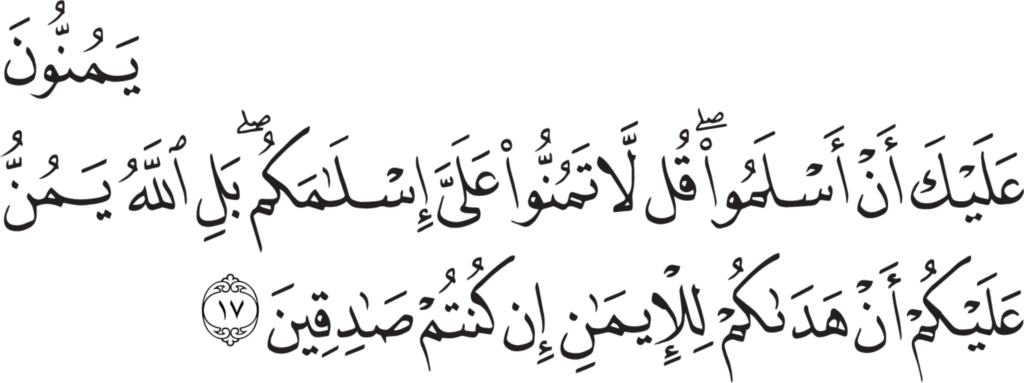 يَمُنُّونَ
عَلَيْكَ أَنْ أَسْلَمُوا۟ ۖ قُل لَّا تَمُنُّوا۟ عَلَىَّ إِسْلَـٰمَكُم ۖ بَلِ ٱللَّهُ يَمُنُّ
عَلَيْكُمْ أَنْ هَدَىٰكُمْ لِلْإِيمَـٰنِ إِن كُنتُمْ صَـٰدِقِينَ ١٧